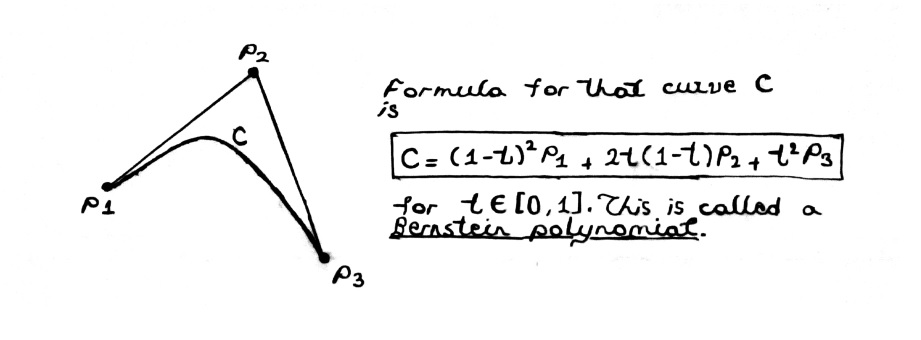 P2
Formula for that curve C
is
C
C = (1-t)² P1 + 2t(1-t)P2 + t² P3
P1
for t ∈ [0,1]. This is called a
Bernstein polynomial.
P3